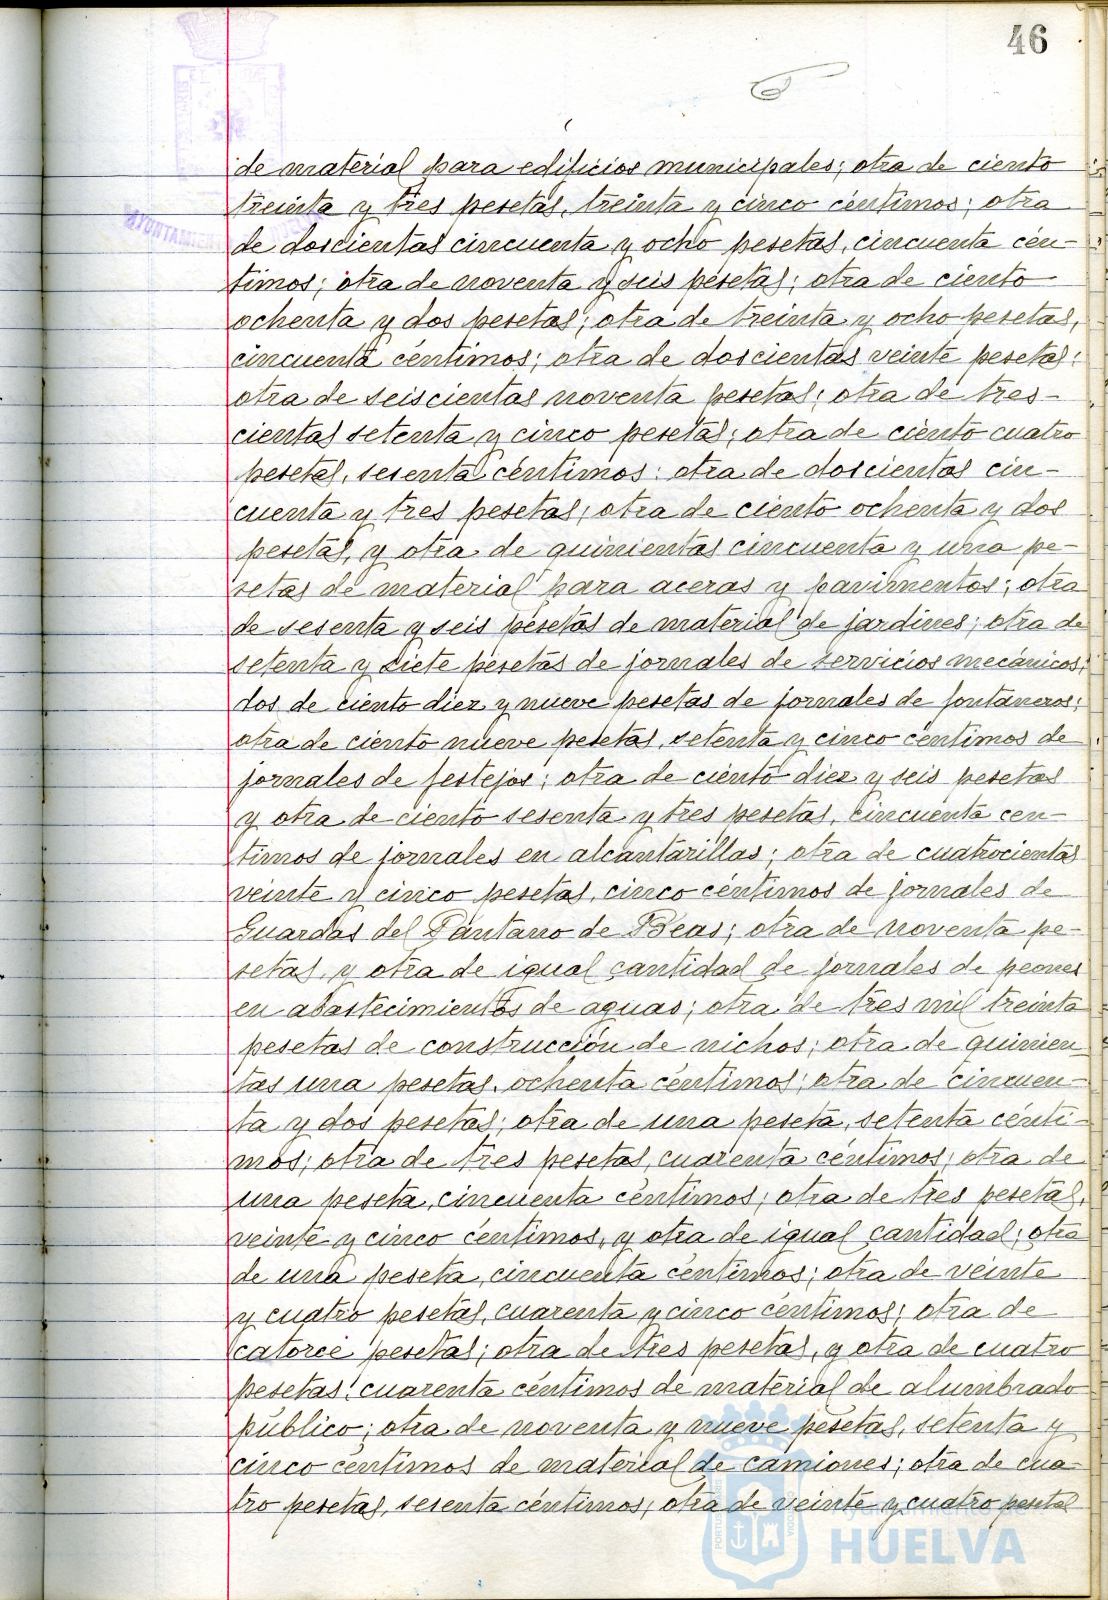 46
de material para edificios municipales; otra de ciento
treinta y tres pesetas, treinta y cinco céntimos; otra
de doscientas cincuenta y ocho pesetas, cincuenta cén-
timos; otra de noventa y seis pesetas; otra de ciento
ochenta y dos pesetas; otra de treinta y ocho pesetas,
cincuenta céntimos; otra de doscientas veinte pesetas;
otra de seiscientas noventa pesetas; otra de tres-
cientas setenta y cinco pesetas; otra de ciento cuatro
pesetas, sesenta céntimos; otra de doscientas cin-
cuenta y tres pesetas; otra de ciento ochenta y dos
pesetas, y otra de quinientas cincuenta y una pe-
setas de material para aceras y pavimentos; otra
de sesenta y seis pesetas de material de jardines; otra de
setenta y siete pesetas de jornales de servicios mecánicos;
dos de ciento diez y nueve pesetas de jornales de fontaneros;
otra de ciento nueve pesetas, setenta y cinco céntimos de
jornales de festejos; otra de ciento diez y seis pesetas
y otra de ciento sesenta y tres pesetas, cincuenta cen-
timos de jornales en alcantarillas; otra de cuatrocientas
veinte y cinco pesetas, cinco céntimos de jornales de
Guardas del Pantano de Beas; otra de noventa pe-
setas, y otra de igual cantidad de jornales de peones
en abastecimientos de aguas; otra de tres mil treinta
pesetas de construcción de nichos; otra de quinien
tas una pesetas, ochenta céntimos; otra de cincuen-
ta y dos pesetas; otra de una peseta, setenta cénti-
mos; otra de tres pesetas, cuarenta céntimos; otra de
una peseta, cincuenta céntimos; otra de tres pesetas,
veinte y cinco céntimos, y otra de igual cantidad; otra
de una peseta, cincuenta céntimos; otra de veinte
y cuatro pesetas, cuarenta y cinco céntimos; otra de
catorce pesetas; otra de tres pesetas, y otra de cuatro
pesetas, cuarenta céntimos de material de alumbrado
público; otra de noventa y nueve pesetas, setenta y
cinco céntimos de material de camiones; otra de cua-
tro pesetas, sesenta céntimos; otra de veinte y cuatro pesetas
Ayuntamiento de
HUELVA